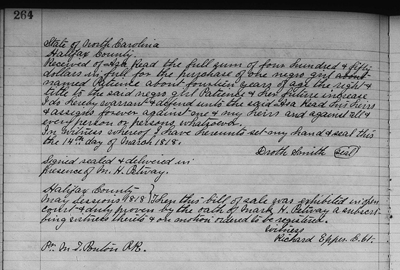 264
State of North Carolina
Halifax County
Received of Asa Read the full sum of four hundred & fifty
dollars in full for the purchase of one negro girl about
named Patience about fourteen years of age the right &
title to the said negro girl Patience & her future increase
I do hereby warrant & defend unto the said Asa Read his heirs
& assigns forever against me & my heirs and against all &
every person or persons whatsoever.
In witness whereof I have hereunto set my hand & seal this
the 14th day of March 1818.
Smith (seal)
Signed sealed & delivered in
presence of M. H. Petway.
Halifax County
May Sessions 1818 } Then this bill of sale was exhibited in open
court & duly proven by the oath of Mark H. Petway a subscri-
bing witness thereto & on motion ordered to be registered,
Witness
Richard Eppes C. Ct.
Pr. M. T. Ponton P.R.